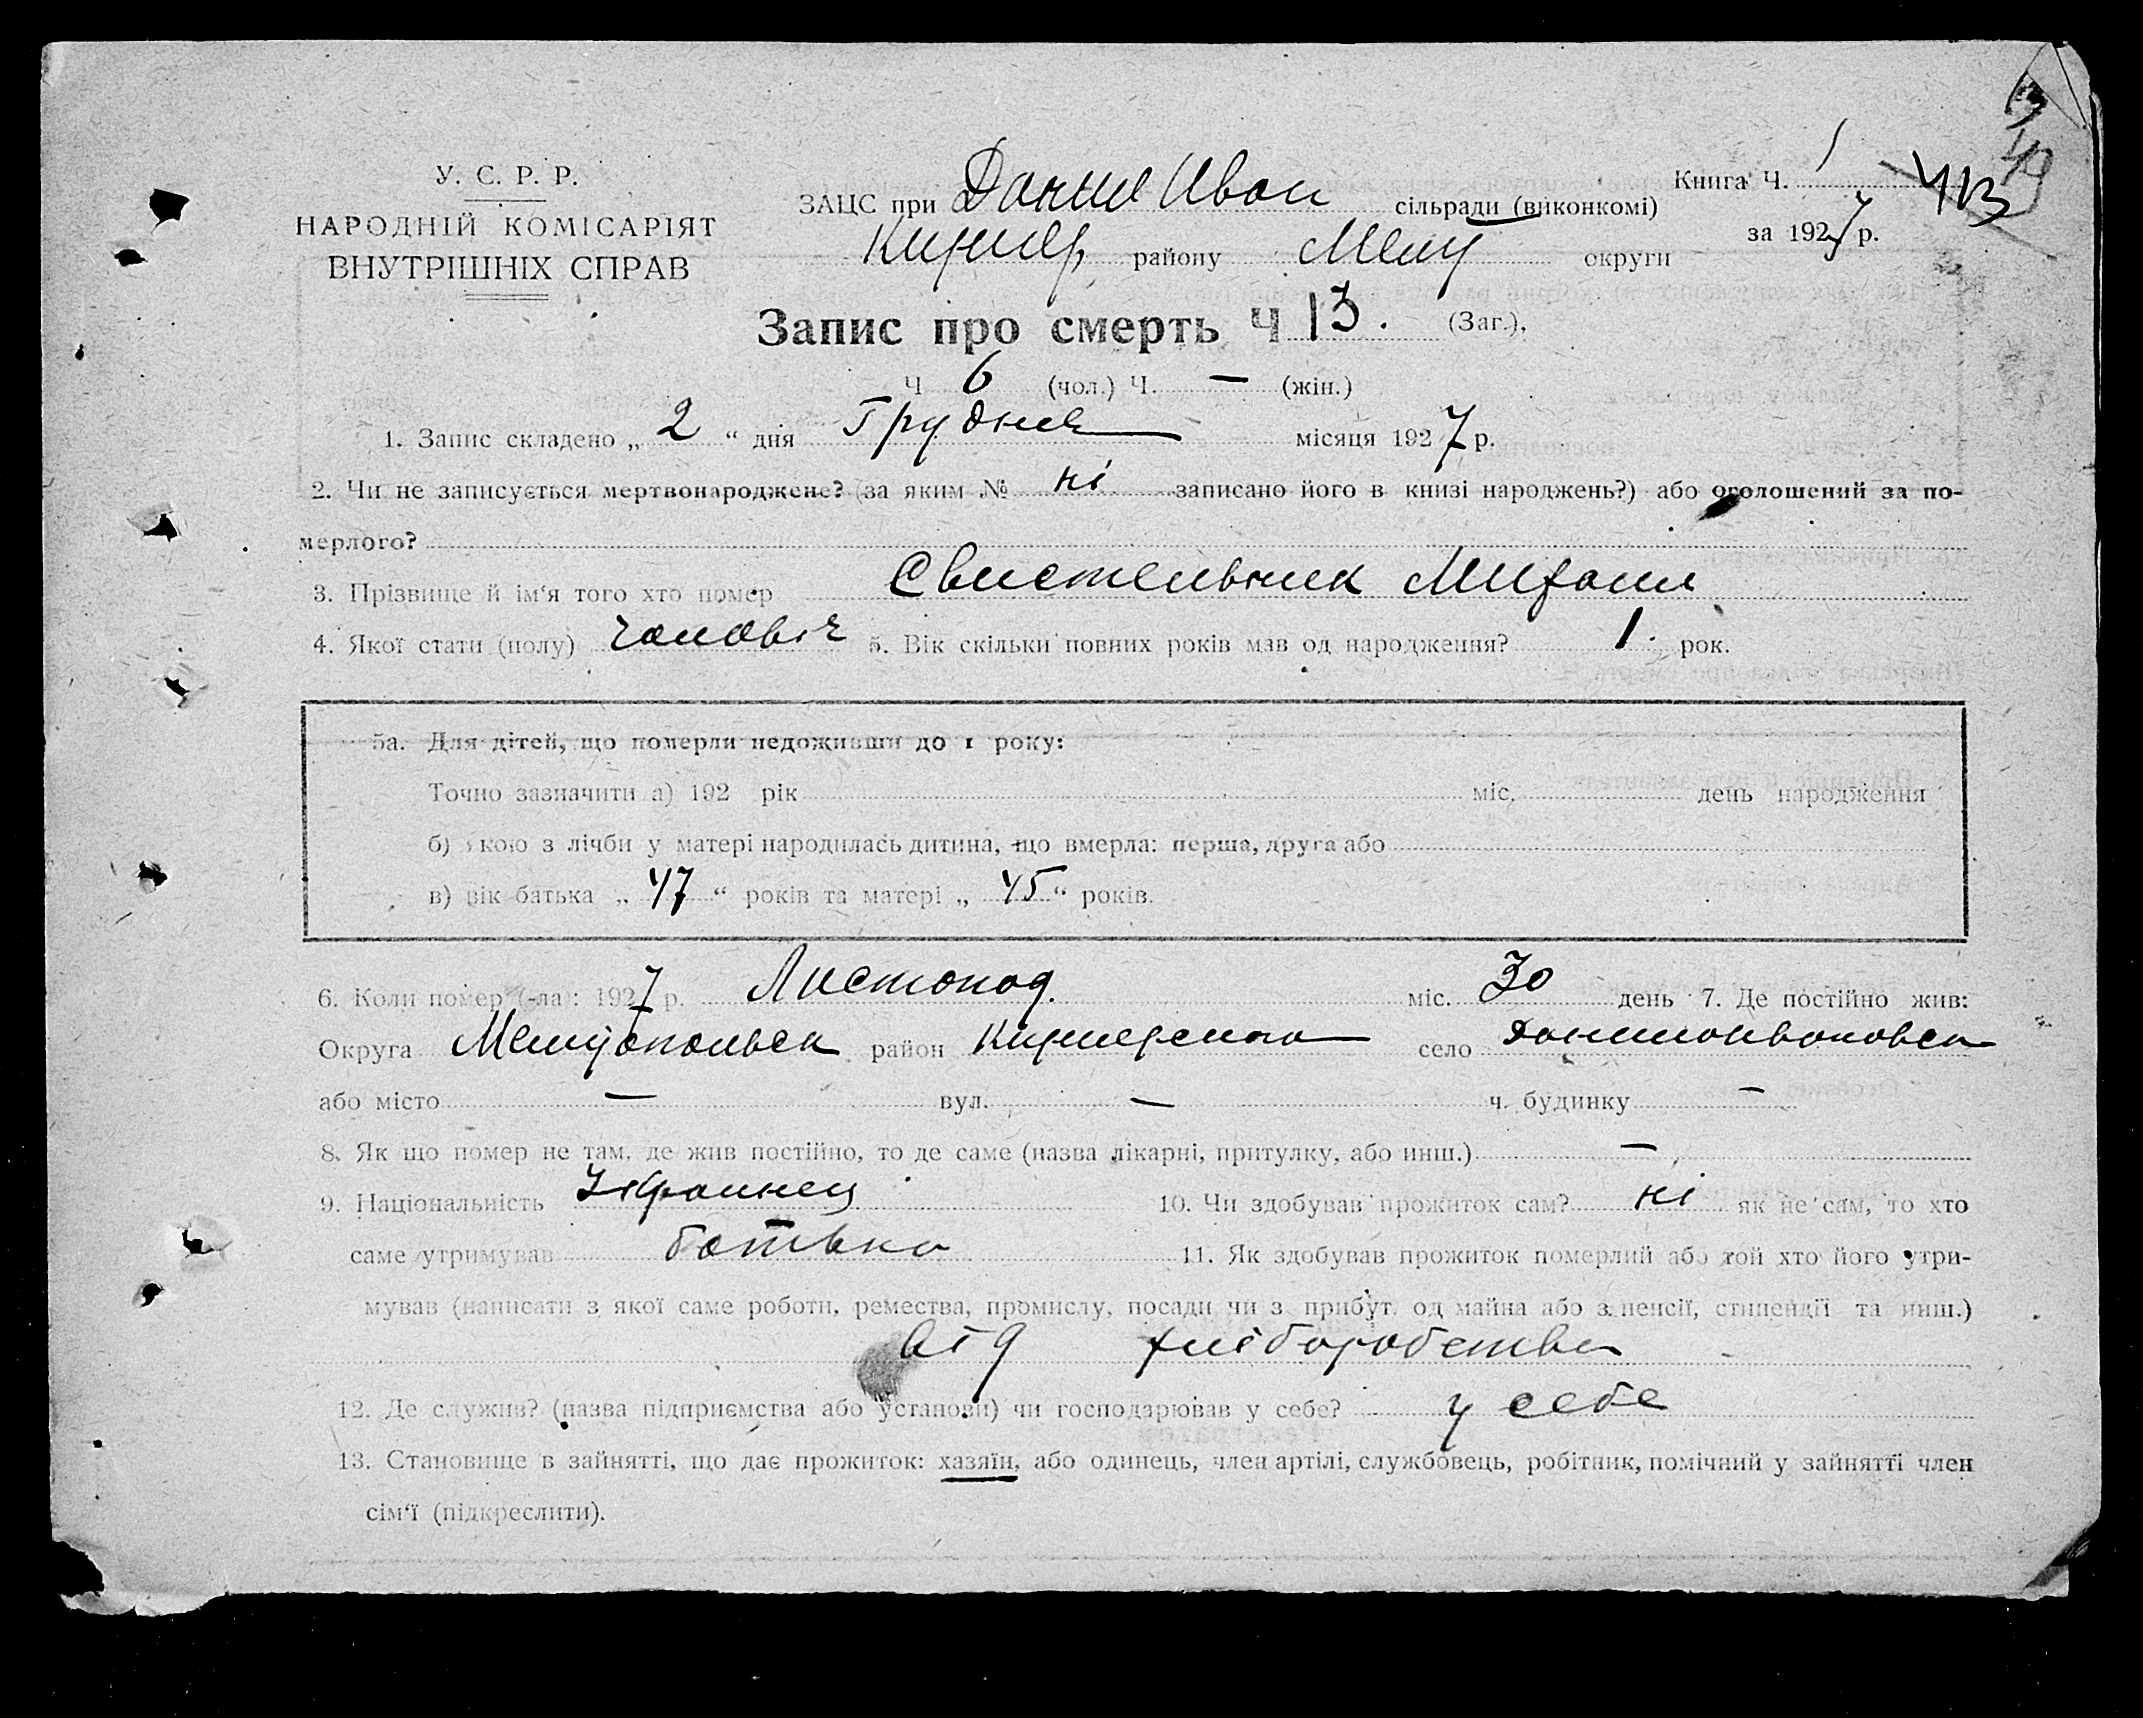 У. С. Р. Р.
НАРОДНІЙ КОМІСАРІЯТ
ВНУТРІШНІХ СПРАВ
Книга Ч. 1
413
за 1927 р.
ЗАЦС при Данил Иван сільради (виконкомі)
Кизиер, району Мелит округи
Запис про смерть Ч 13. (Заг.),
Ч 6 (чол.) Ч. — (жін.)
1. Запис складено „ 2 “ дня Грудня місяця 1927 р.
2. Чи не записується мертвонароджене? (за яким № ні записано його в книзі народжень?) або оголошений за по-
мерлого?
3. Прізвище й ім‘я того хто помер Свистельник Михаил
4. Якої стати (полу) чоловіч 5. Вік скільки повних років мав од народження? 1. рок.
5а. Для дітей, що померли недоживши до 1 року:
Точно зазначити а) 192 рік міс. день народження
б) кою з лічби у матері народилась дитина, що вмерла: перша, друга або
в) вік батька „ 47 “ років та матері „ 45 “ років.
6. Коли помер (-ла): 1927 р. Листопад. міс. 30 день 7. Де постійно жив:
Округа Мелитопольск район село Данилоивановка
або місто — вул. — ч. будинку —
8. Як що помер не там, де жив постійно, то де саме (назва лікарні, притулку, або инш.) —
9. Національність Украинец 10. Чи здобував прожиток сам? ні як не сам, то хто
саме утримував батько 11. Як здобував прожиток померлий або той хто його утри-
мував (написати з якої саме роботи, ремества, промислу, посади чи з прибут. од майна або з пенсії, стипендії та инш.)
від хліборобства
12. Де служив? (назва підприємства або установи) чи господарював у себе? у себе
13. Становище в зайнятті, що дає прожиток: хазяїн, або одинець, член артілі, службовець, робітник, помічний у зайнятті член
сім‘ї (підкреслити).